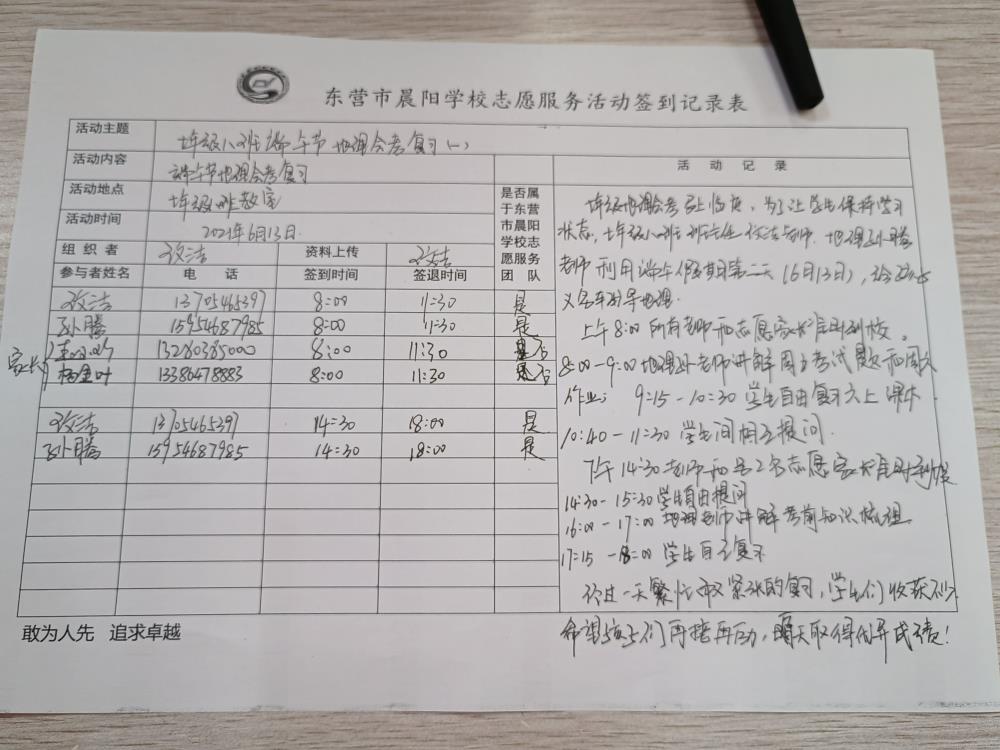 东营市晨阳学校志愿服务活动签到记录表
活动主题 七年级八班端午节地理会考复习(一)
活动内容 端午节地理会考复习
活动地点 七年级八班教室
活动时间 2021年6月13日
组织者 资料上传
参与者姓名 电话 签到时间 签退时间 是否属于东营市晨阳学校志愿服务团队
13705465397 8:00 11:30 是
孙腾 15954687985 8:00 11:30 是
家长
13280385000 8:00 11:30 否
杨金叶 13380478883 8:00 11:30 否
13705465397 14:30 18:00 是
孙腾 15954687985 14:30 18:00 是
活动记录
七年级地理会考马上临近,为了让学生保持学习
状态,七年级八班班主任 老师、地理孙腾
老师利用端午假期第二天(6月13日),给孩子
义务辅导地理.
上午8:00所有老师和志愿家长准时到校。
8:00-9:00地理孙老师讲解周末考试题和周六
作业; 9:15-10:30学生自由复习六上课本.
10:40-11:30学生间相互提问.
下午14:30老师和另2名志愿家长准时到校
14:30-15:30学生自由提问
16:00-17:00地理老师讲解考前知识梳理
17:15-18:00学生自主复习
经过一天繁忙而又紧张的复习,学生们收获
希望孩子们再接再厉,明天取得优异成绩!
敢为人先 追求卓越